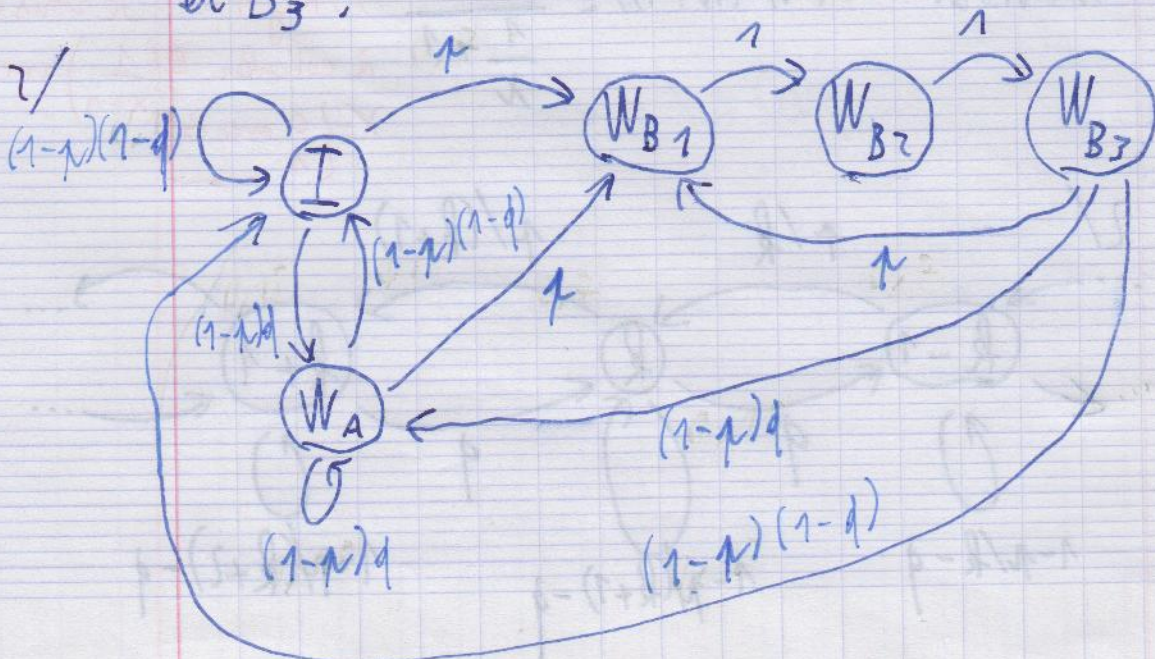 et B3.
2/
p
1
1
(1-p)(1-q)
I
WB1
WB2
WB3
(1-p)(1-q)
p
p
(1-p)q
WA
(1-p)q
(1-p)q
(1-p)(1-q)